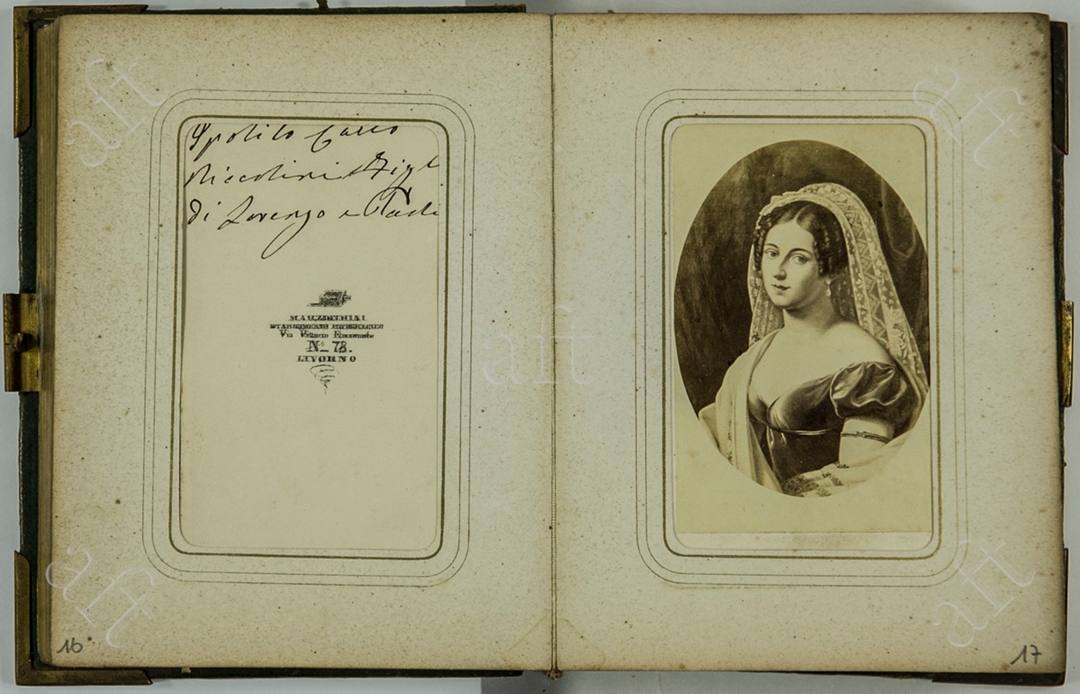 Ipolito
Niccolini Figl
di Lorenzo e
MARZOCCHINI
STABILIMENTO FOTOGRAFICO
Via Vittorio Emanuele
N. 78.
LIVORNO
16
17
aft
aft
aft
aft
aft